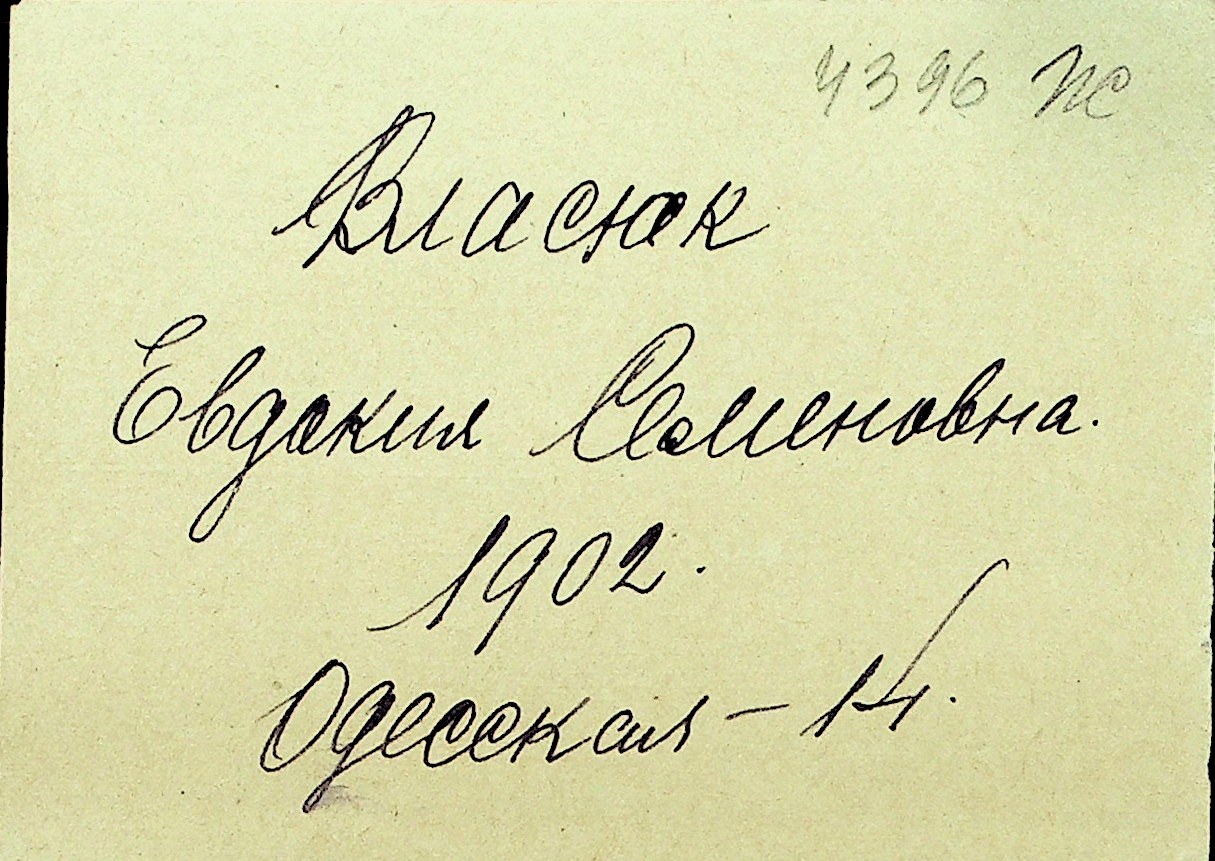 4396 ПС
Власюк
Евдокия Семеновна.
1902.
Одесская - 14.